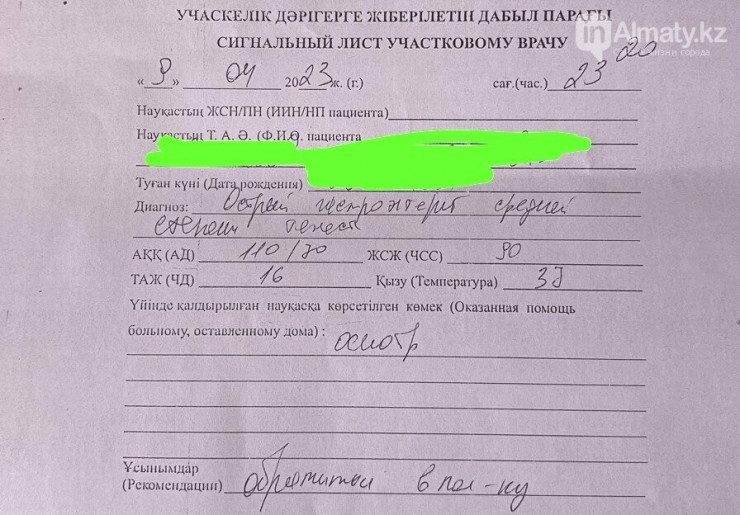 УЧАСКЕЛІК ДӘРІГЕРГЕ ЖІБЕРІЛЕТІН ДАБЫЛ ПАРАҒЫ
inAlmaty.kz
СИГНАЛЬНЫЙ ЛИСТ УЧАСТКОВОМУ ВРАЧУ
« 9 » 04 2023ж. (г.) сағ.(час.) 23 20
Науқастың ЖСН/ПН (ИИН/НП пациента)
Науқастың Т. А. Ә. (Ф.И.О. пациента
Туған күні (Дата рождения)
Диагноз: Острый гастроэнтерит средней
степени тяжест
АҚҚ (АД) 110/70 ЖСЖ (ЧСС) 90
ТАЖ (ЧД) 16 Қызу (Температура) 37
Үйінде қалдырылған науқасқа көрсетілген көмек (Оказанная помощь
больному, оставленному дома) :
осмотр
Ұсынымдар
(Рекомендации) обратиться в пол-ку